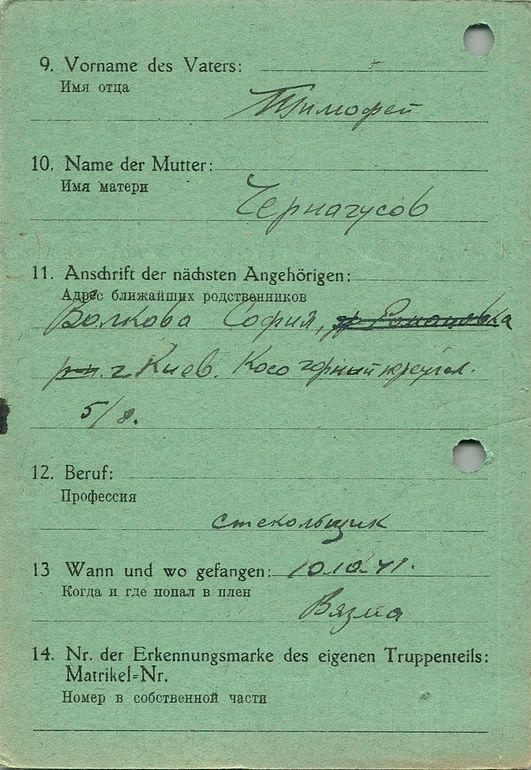 9. Vorname des Vaters:
Имя отца
Тимофей
10. Name der Mutter:
Имя матери
Чернагусов
11. Anschrift der nächsten Angehörigen:
Адрес ближайших родственников
Волкова София,
г Киев. Косогорный
5/8.
12. Beruf:
Профессия
стекольщик
13 Wann und wo gefangen: 10.10.41.
Когда и где попал в плен
Вязма
14. Nr. der Erkennungsmarke des eigenen Truppenteils:
Matrikel-Nr.
Номер в собственной части